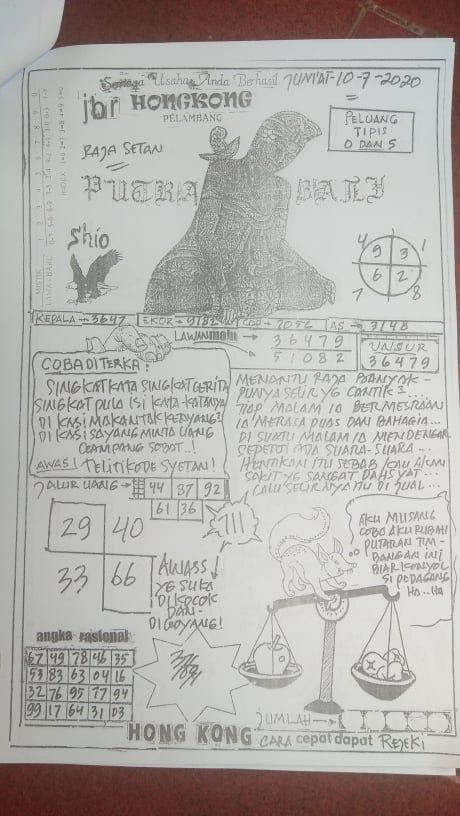 Semoga Usaha Anda Berhasil
JUM'AT-10-7-2020
jbr HONGKONG
PELAMBANG
PELUANG
TIPIS
0 DAN 5
RAJA SETAN
PUTRA BALI
Shio
4 9 3 1
7 6 2 8
KEPALA → 3647 EKOR → 9182 COP → 7056 AS → 3148
LAWAN main
36479
51082
UNSUR
36479
COBA DI TERKA:
SINGKAT KATA SINGKAT CERITA
SINGKAT PULA ISI KATA-KATANYA
DI KASI MAKAN TAK KENYANG?
DI KASI SAYANG MINTA UANG
GAMPANG SOBAT..!
AWAS! TELITI KODE SYETAN!
MENANTU RAJA BANYAK-
PUNYA SELIR YG CANTIK²...
TIAP MALAM IA BERMESRAAN
IA MERASA PUAS DAN BAHAGIA...
DI SUATU MALAM IA MENDENGAR
SEPERTI ADA SUARA-SUARA...
HENTIKAN ITU SEBAB KAU AKAN
SAKIT YG SANGAT DAHSYAT...
LALU SELIRNYA ITU DI JUAL...
JALUR UANG → 44 87 92
61 36
29 40
33 66
AWASS
YG SUKA
DI KOCOK
DAN-
DI GOYANG!
AKU MUSANG
COBA AKU RUBAH
PUTARAN TIM-
BANGAN INI
BIAR KONYOL
SI PEDAGANG
HA..HA
angka rasional
67 49 78 46 35
53 83 63 04 16
32 76 95 77 94
99 17 64 31 03
JUMLAH →
HONG KONG CARA cepat dapat REJEKI